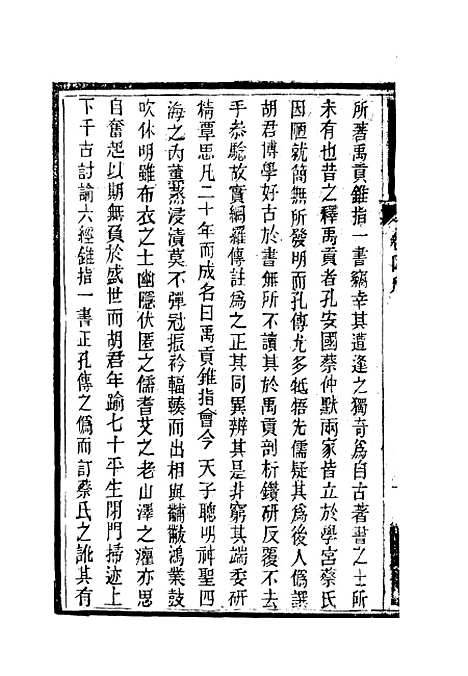 所著禹貢錐指一書竊幸其遭逢之獨奇為自古著書之士所
未有也昔之釋禹貢者孔安國蔡仲默兩家皆立於學宮蔡氏
因陋就簡無所發明而孔傳尤多牴牾先儒疑其為後人偽譔
胡君博學好古於書無所不讀其於禹貢剖析鑽研反覆不去
手叅驗故實網羅傳註為之正其同異辨其是非窮其端委研
精覃思凡二十年而成名曰禹貢錐指會今 天子聰明神聖四
海之內薰蒸浸漬莫不彈冠振衿輻輳而出相與黼黻鴻業鼓
吹休明雖布衣之士幽隱伏匿之儒耆艾之老山澤之癯亦思
自奮起以期無負於盛世而胡君年踰七十平生閉門掃迹上
下千古討論六經錐指一書正孔傳之偽而訂蔡氏之訛其有